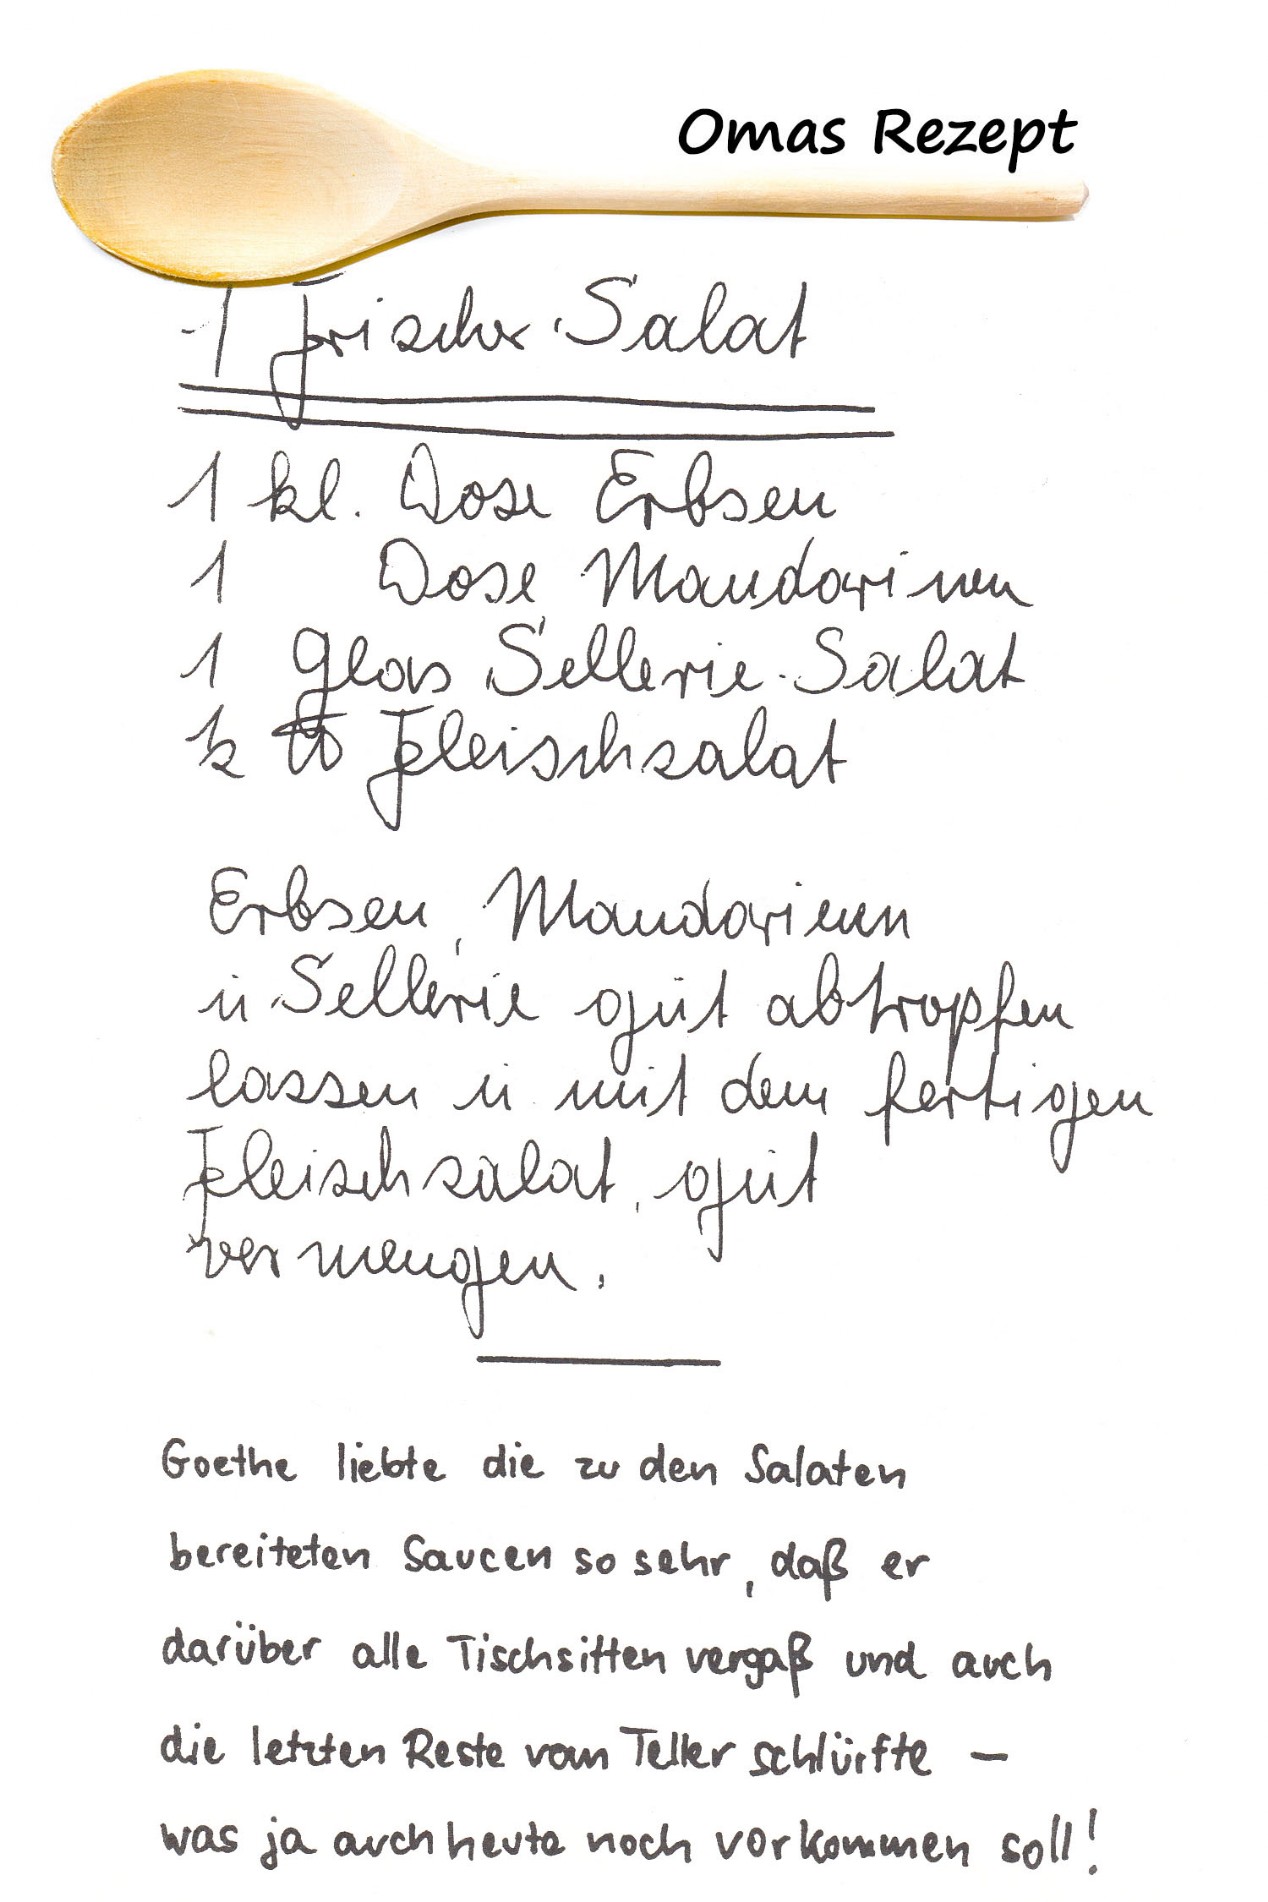 Omas Rezept
1 frischer Salat
1 kl. Dose Erbsen
1 Dose Mandarinen
1 Glas Sellerie-Salat
½ ℔ Fleischsalat
Erbsen, Mandarinen
u Sellerie gut abtropfen
lassen u mit dem fertigen
Fleischsalat, gut
vermengen.
Goethe liebte die zu den Salaten
bereiteten Saucen so sehr, daß er
darüber alle Tischsitten vergaß und auch
die letzten Reste vom Teller schlürfte –
was ja auch heute noch vorkommen soll!